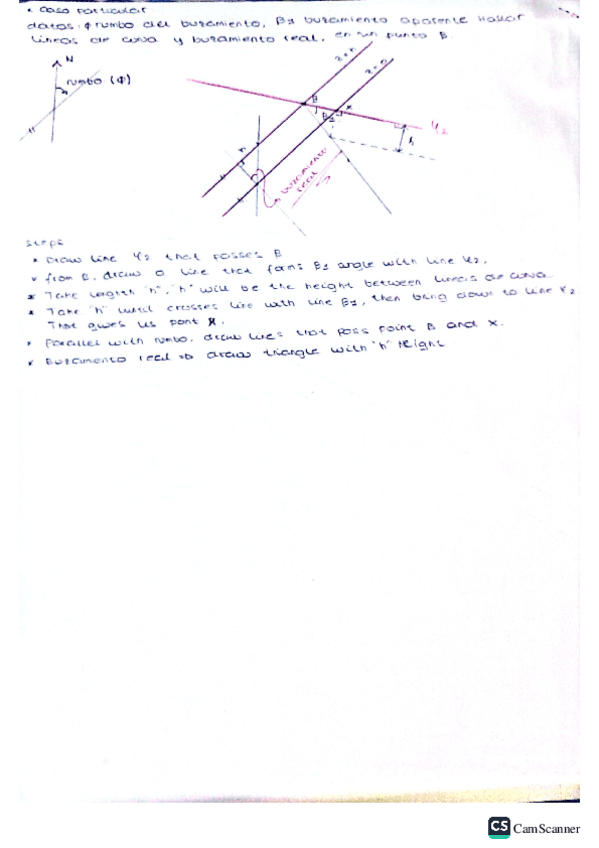 * Caso particular
datos: ϕ rumbo del buzamiento, β1 buzamiento aparente Hallar
lineas de cota y buzamiento real, en un punto B.
N
rumbo (ϕ)
z=n
B
β1
x
r2
h
h
buzamiento
real
Steps
* Draw line r2 that passes B
* from B, draw a line that forms β1 angle with line r2.
* Take length "h". "h" will be the height between lineas de cota
* Take "h" until crosses line with line β1, then bring down to line r2
That gives us point X.
* Parallel with rumbo, draw lines that pass point B and X.
* Buzamiento real => draw triangle with "h" Height
CS CamScanner